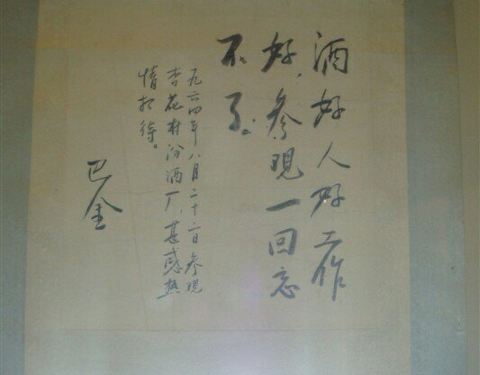 酒好人好工作
好，参观一回忘
不了。
一九六四年八月二十六日参观
杏花村汾酒厂，甚感热
情招待。
巴金